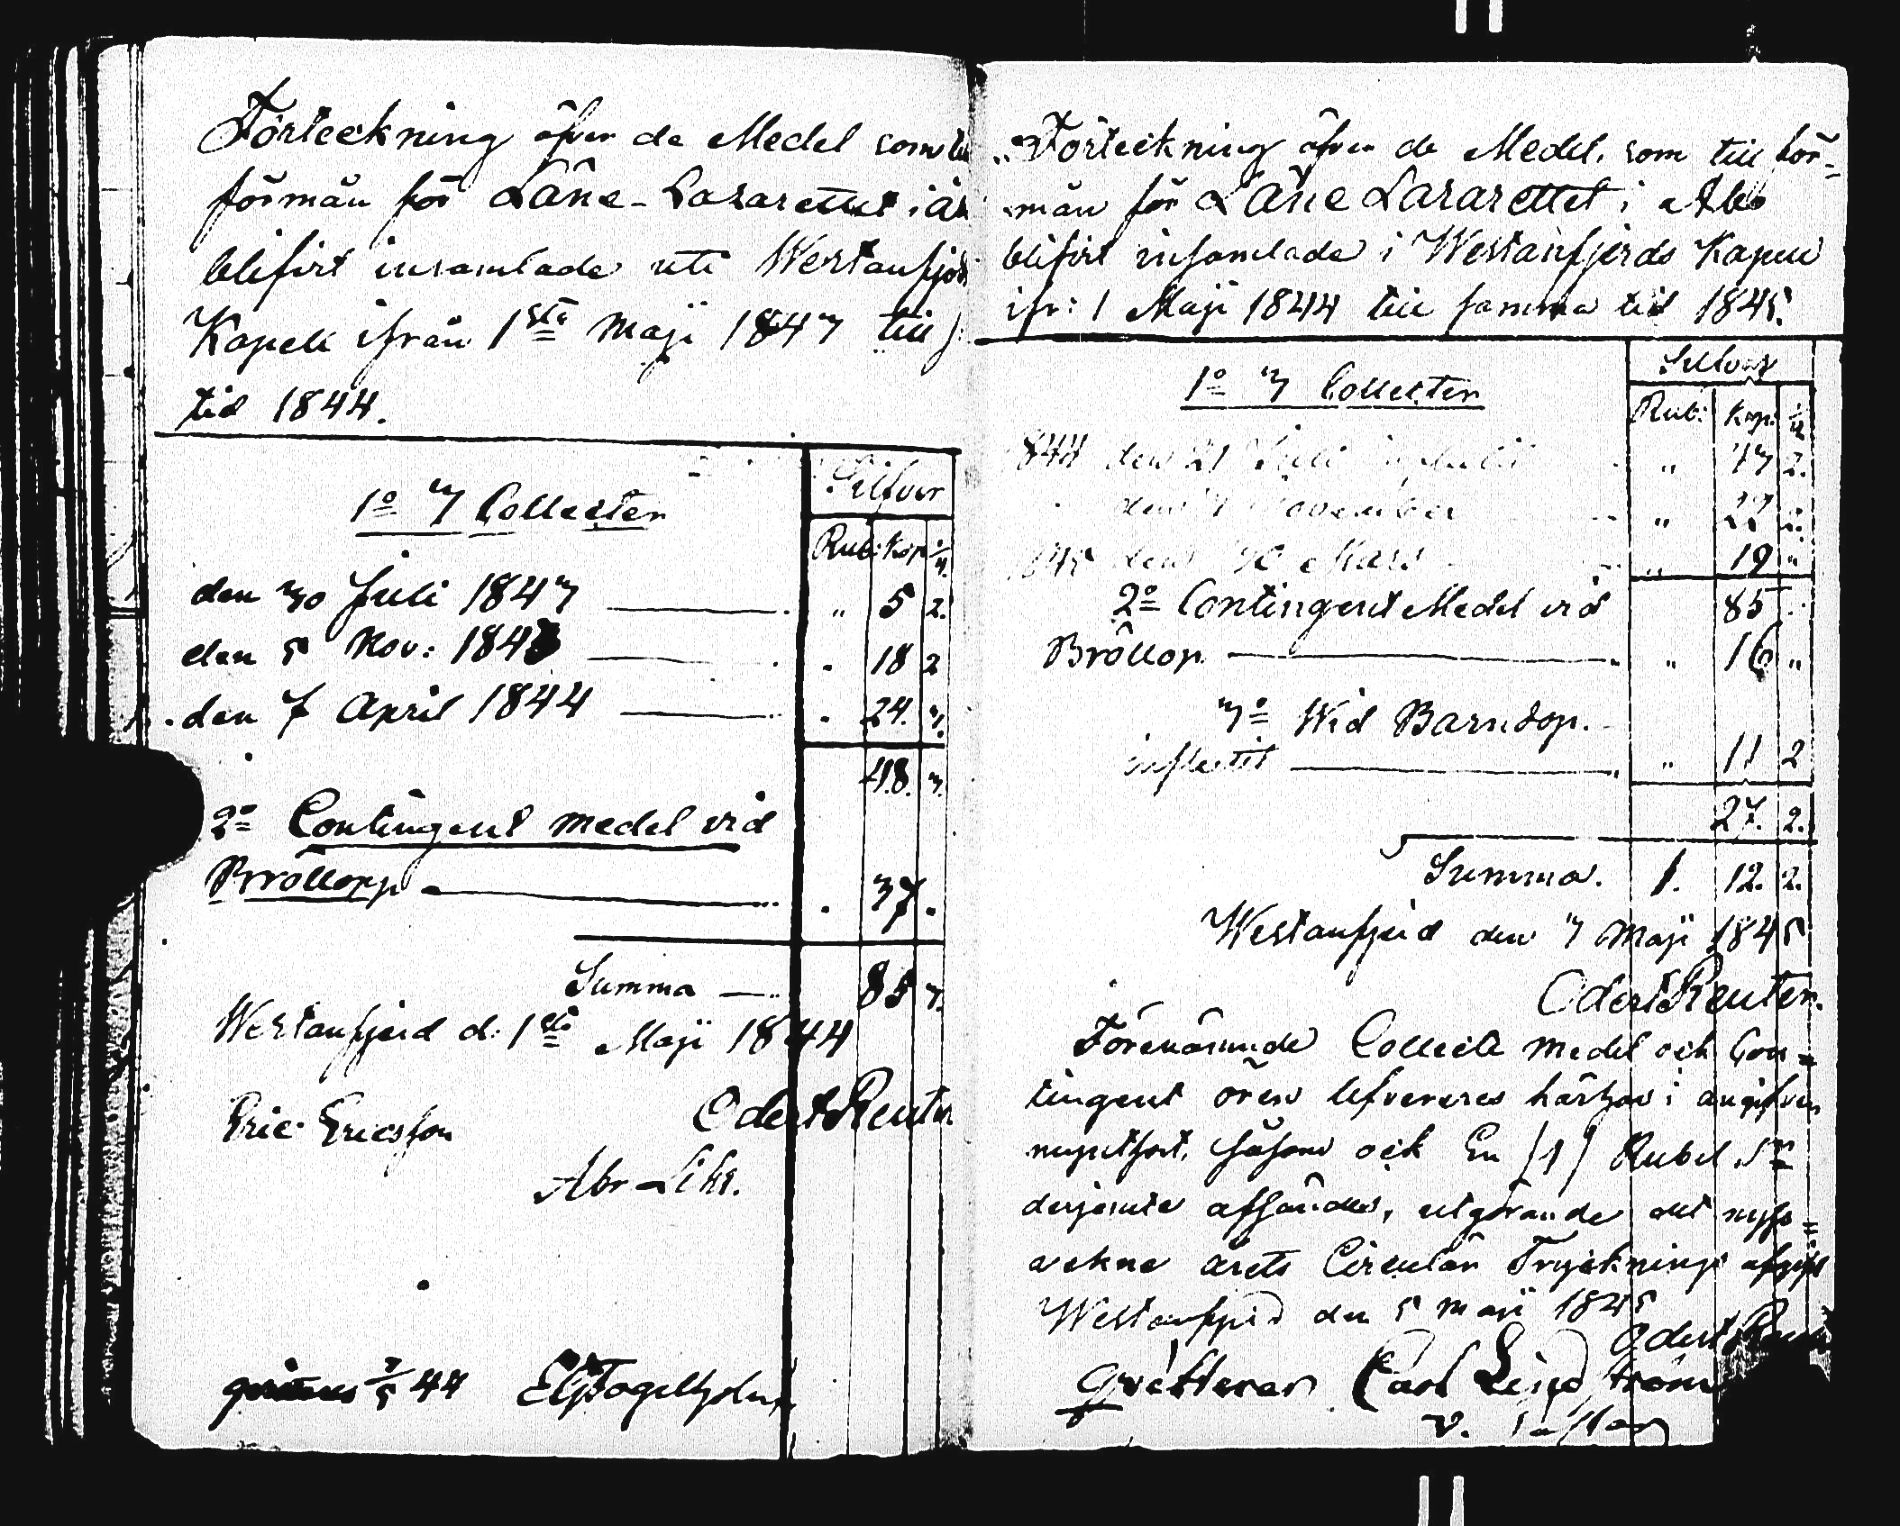 Förteckning öfver de Medel som till
förmån för Läne-Lazarettet i Åbo
blifvit insamlade uti Westanfjerds
Kapell ifrån 1sta Maji 1843 till s:
tid 1844.
Silfver
1o 3 Collecter
Rub: Kop: 1/4
den 30 Juli 1843 " 5 2.
den 5 Nov: 1843 . 18 2
den 7 April 1844 . 24. 3.
48. 3.
2o Contingent medel vid
Bröllopp . 37 .
Summa 85 3.
Westanfjerd d: 1sta Maji 1844
Eric Ericsson Odert Reuter
Abr
44
Förteckning öfver de Medel, som till för-
mån för Läne Lazarettet i Åbo
blifvit insamlade i Westanfjerds Kapell
ifr: 1 Maji 1844 till samma tid 1845.
Silfver
1o 3 Collecter
Rub: Kop: 1/4
1844 den 21 Juli " 43 2.
den 3 November " 22 2.
1845 den 30 Mars " 19 "
2o Contingent Medel vid 85 .
Bröllop " 16 "
3o Wid Barndop.
influtit " 11 2
27. 2.
Summa. 1. 12. 2.
Westanfjerd den 3 Maji 1845
Odert Reuter.
Förenämnde Collect medel och Con-
tingent ören lefvereres härhos i angifven
myntsort, såsom ock En /1/ Rubel Sr
derjemte afsändes, utgörande det nyss
vekne årets Circulär Trycknings afgift
Westanfjerd den 5 Maji 1845
Odert Reuter
Qvitterar Carl Lindström
v.